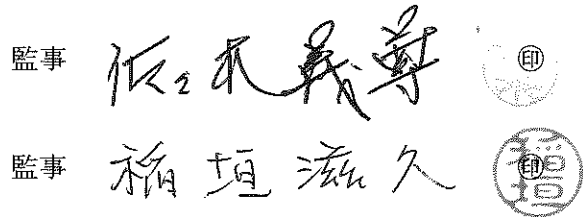 監事 佐々木義尊 ㊞
監事 稲垣滋久 ㊞ 稲垣